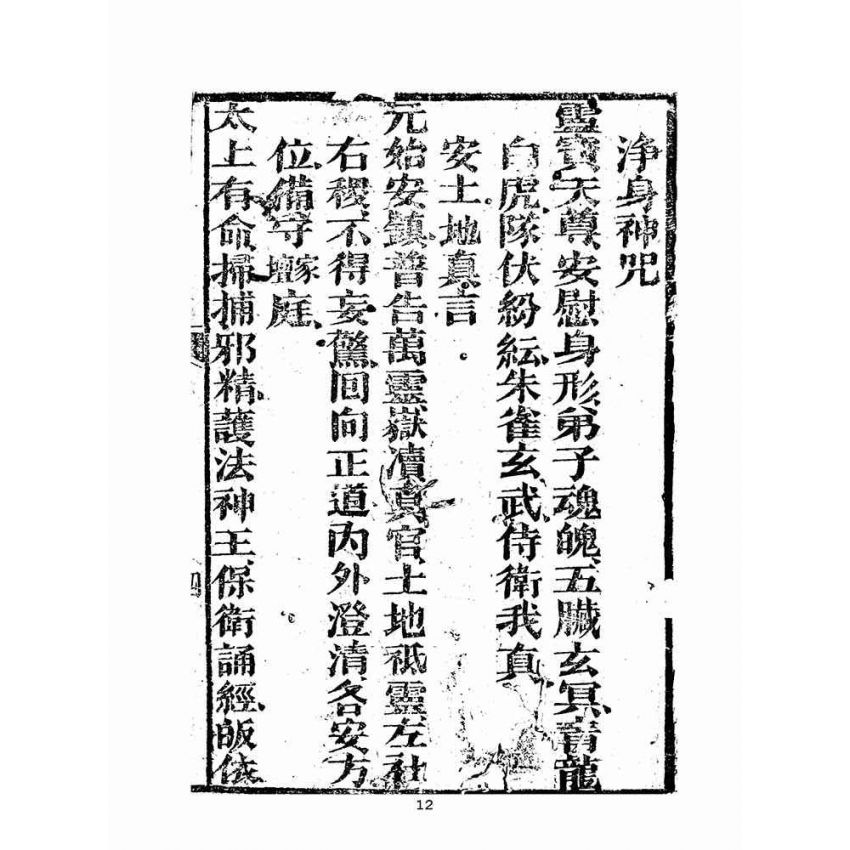 淨身神咒
靈寶天尊安慰身形弟子魂魄五臟玄冥青龍
白虎隊伏紛紜朱雀玄武侍衛我真
安土地真言
元始安鎮普告萬靈嶽瀆真官土地祇靈左社
右稷不得妄驚回向正道內外澄清各安方
位備守壇家庭
太上有命掃捕邪精護法神王保衛誦經皈依
12